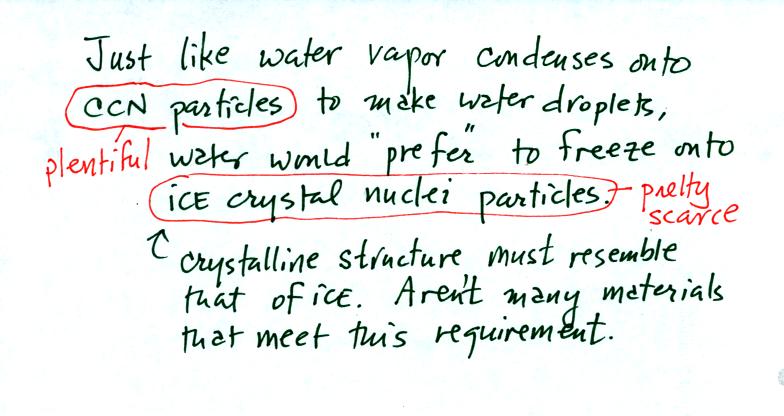 Just like water vapor condenses onto
CCN particles to make water droplets,
plentiful water would "prefer" to freeze onto
icE crystal nuclei particles. pretty
scarce
crystalline structure must resemble
that of icE. Aren't many materials
that meet this requirement.